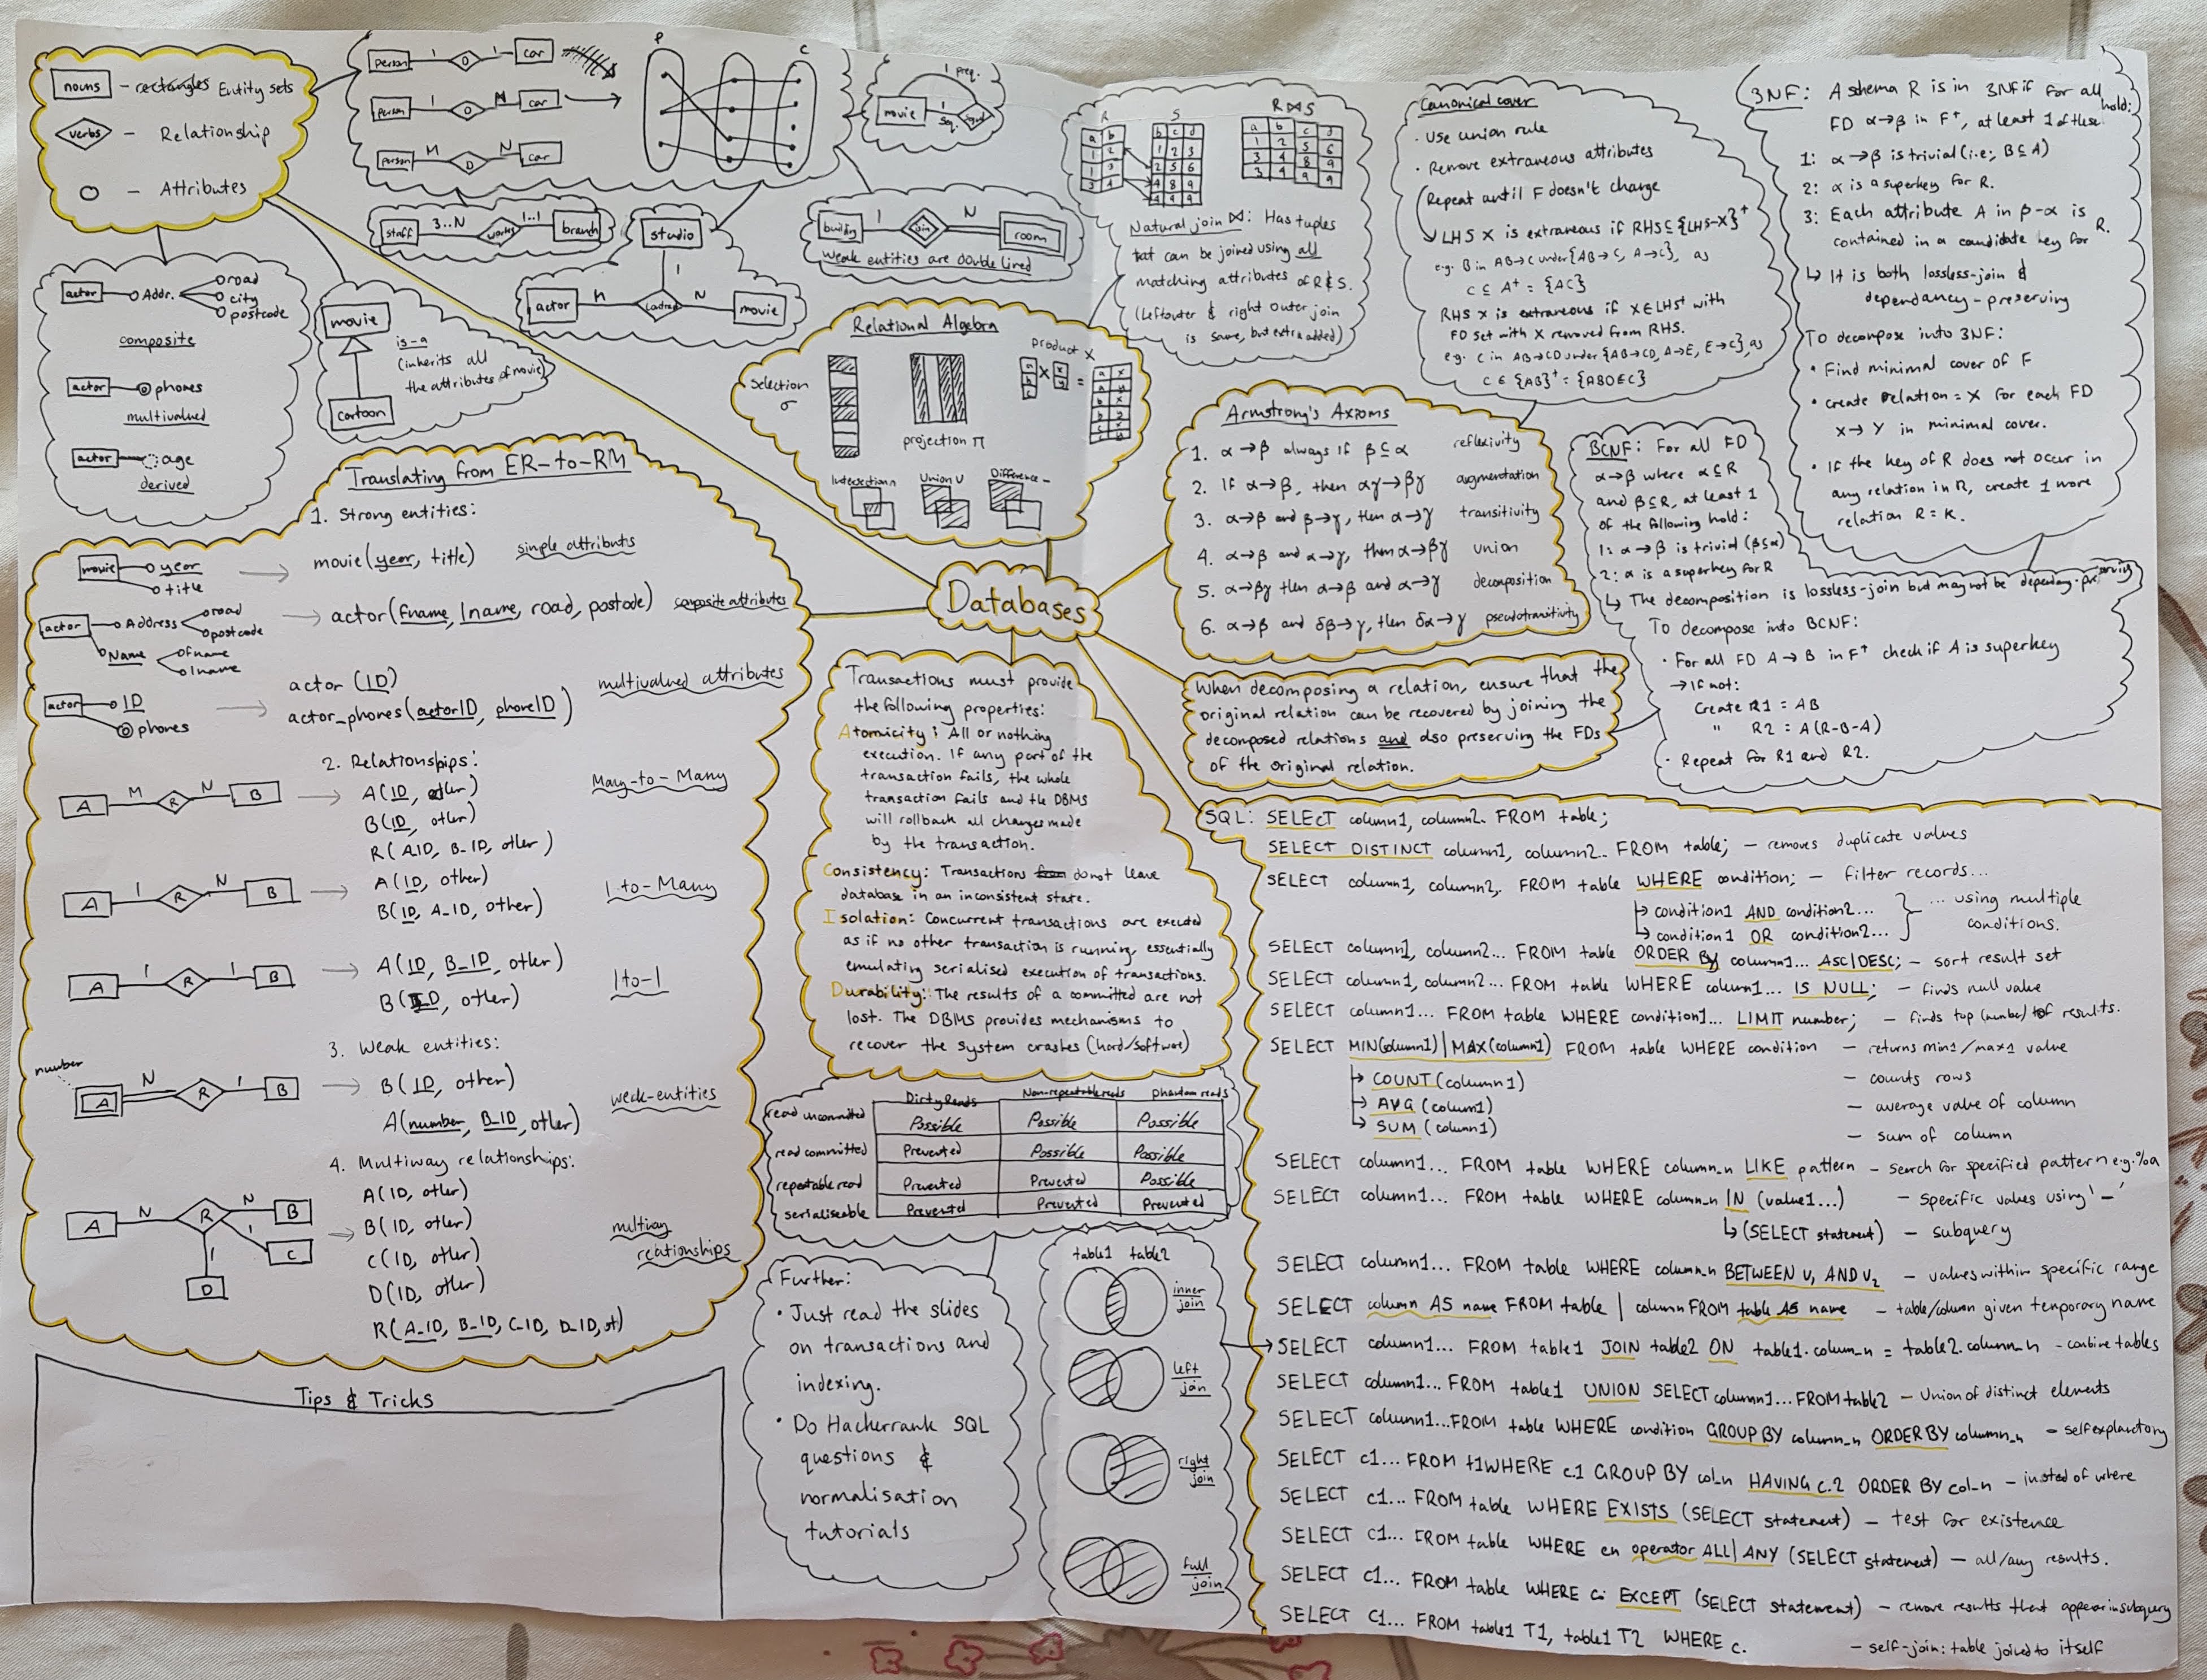 nouns - rectangles Entity sets
verbs - Relationship
O - Attributes
person 1 O 1 car
person 1 O N car
person M O N car
P C
movie 1 preq. 1 seq.
staff 3..N works 1..1 branch
studio
1
actor N N movie
building 1 in N room
weak entities are double lined
actor Addr. road
city
postcode
composite
actor phones
multivalued
actor age
derived
movie
is-a
(inherits all
the attributes of movie)
cartoon
R S R⋈S
a b b c d a b c d
Natural join ⋈: Has tuples
that can be joined using all
matching attributes of R & S.
(Left outer & right outer join
is same, but extra added)
Canonical cover
· Use union rule
· Remove extraneous attributes
Repeat until F doesn't change
↳ LHS X is extraneous if RHS ⊆ {LHS-X}⁺
e.g. B in AB→C under {AB→C, A→C}, as
C ⊆ A⁺ = {AC}
RHS X is extraneous if X ∈ LHS⁺ with
FD set with X removed from RHS.
e.g. C in AB→CD under {AB→CD, A→E, E→C}, as
C ∈ {AB}⁺ = {ABDEC}
3NF: A schema R is in 3NF if for all
FD α→β in F⁺, at least 1 of these hold:
1: α→β is trivial (i.e; B ⊆ A)
2: α is a superkey for R.
3: Each attribute A in β-α is
contained in a candidate key for R.
↳ It is both lossless-join &
dependancy-preserving
To decompose into 3NF:
· Find minimal cover of F
· create relation = X for each FD
X→Y in minimal cover.
· If the key of R does not occur in
any relation in R, create 1 more
relation R = K.
Relational Algebra
Selection
σ
projection π
product X
Intersection ∩ Union ∪ Difference -
Armstrong's Axioms
1. α→β always if β⊆α reflexivity
2. If α→β, then αγ→βγ augmentation
3. α→β and β→γ, then α→γ transitivity
4. α→β and α→γ, then α→βγ union
5. α→βγ then α→β and α→γ decomposition
6. α→β and δβ→γ, then δα→γ pseudotransitivity
BCNF: For all FD
α→β where α⊆R
and β⊆R, at least 1
of the following hold:
1: α→β is trivial (β⊆α)
2: α is a superkey for R
↳ The decomposition is lossless-join but may not be
To decompose into BCNF:
· For all FD A→B in F⁺ check if A is superkey
→ If not:
Create R1 = AB
" R2 = A(R-B-A)
· Repeat for R1 and R2.
Databases
When decomposing a relation, ensure that the
original relation can be recovered by joining the
decomposed relations and also preserving the FDs
of the original relation.
Translating from ER-to-RM
1. Strong entities:
movie year → movie(year, title) simple attributes
title
actor Address road → actor(fname, lname, road, postcode) composite attributes
postcode
Name fname
lname
actor ID → actor (ID) multivalued attributes
phones actor_phones(actorID, phoneID)
2. Relationships:
A M R N B → A(ID, other) Many-to-Many
B(ID, other)
R(A_ID, B_ID, other)
A 1 R N B → A(ID, other) 1-to-Many
B(ID, A_ID, other)
A 1 R 1 B → A(ID, B_ID, other) 1-to-1
B(ID, other)
3. Weak entities:
number
A N R 1 B → B(ID, other) weak-entities
A(number, B_ID, other)
4. Multiway relationships:
A N R N B → A(ID, other)
B(ID, other)
1 C C(ID, other) multiway
1 D D(ID, other) relationships
R(A_ID, B_ID, C_ID, D_ID, ot)
Tips & Tricks
Transactions must provide
the following properties:
Atomicity: All or nothing
execution. If any part of the
transaction fails, the whole
transaction fails and the DBMS
will rollback all changes made
by the transaction.
Consistency: Transactions do not leave
database in an inconsistent state.
Isolation: Concurrent transactions are executed
as if no other transaction is running, essentially
emulating serialised execution of transactions.
Durability: The results of a committed are not
lost. The DBMS provides mechanisms to
recover the system crashes (hard/software)
Dirty Reads Non-repeatable reads phantom reads
read uncommitted Possible Possible Possible
read committed Prevented Possible Possible
repeatable read Prevented Prevented Possible
serialiseable Prevented Prevented Prevented
Further:
· Just read the slides
on transactions and
indexing.
· Do Hackerrank SQL
questions &
normalisation
tutorials
table1 table2
inner
join
left
join
right
join
full
join
SQL: SELECT column1, column2.. FROM table;
SELECT DISTINCT column1, column2.. FROM table; - removes duplicate values
SELECT column1, column2,. FROM table WHERE condition; - filter records...
↳ condition1 AND condition2... } ... using multiple
↳ condition1 OR condition2... conditions.
SELECT column1, column2... FROM table ORDER By column1... ASC|DESC; - sort result set
SELECT column1, column2... FROM table WHERE column1... IS NULL; - finds null value
SELECT column1... FROM table WHERE condition1... LIMIT number; - finds top (number) of results.
SELECT MIN(column1)|MAX(column1) FROM table WHERE condition - returns min1/max1 value
↳ COUNT(column1) - counts rows
↳ AVG (column1) - average value of column
↳ SUM (column1) - sum of column
SELECT column1... FROM table WHERE column_n LIKE pattern - search for specified pattern e.g. %a
SELECT column1... FROM table WHERE column_n IN (value1...) - specific values using '_'
↳ (SELECT statement) - subquery
SELECT column1... FROM table WHERE column_n BETWEEN V₁ AND V₂ - values within specific range
SELECT column AS name FROM table | column FROM table AS name - table/column given temporary name
SELECT column1... FROM table1 JOIN table2 ON table1.column_n = table2.column_n - combine tables
SELECT column1... FROM table1 UNION SELECT column1... FROM table2 - Union of distinct elements
SELECT column1...FROM table WHERE condition GROUP BY column_n ORDER BY column_n - self explanatory
SELECT c1... FROM t1 WHERE c.1 GROUP BY col_n HAVING c.2 ORDER BY col_n - insted of where
SELECT c1... FROM table WHERE EXISTS (SELECT statement) - test for existence
SELECT C1... FROM table WHERE cn operator ALL|ANY (SELECT statement) - all/any results.
SELECT C1... FROM table WHERE c. EXCEPT (SELECT statement) - remove results that appear in subquery
SELECT C1... FROM table1 T1, table1 T2 WHERE c. - self-join: table joined to itself